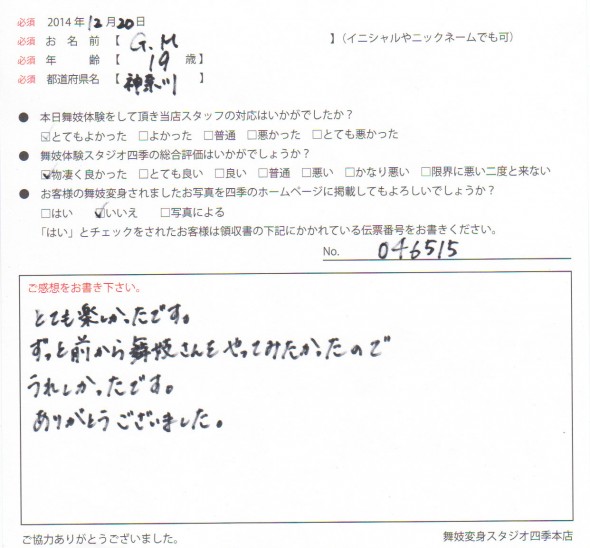 必須 2014年12月20日
必須 お名前【 G.M 】(イニシャルやニックネームでも可)
必須 年齢【 19 歳】
必須 都道府県名【 神奈川 】
● 本日舞妓体験をして頂き当店スタッフの対応はいかがでしたか?
☑とてもよかった □よかった □普通 □悪かった □とても悪かった
● 舞妓体験スタジオ四季の総合評価はいかがでしょうか?
☑物凄く良かった □とても良い □良い □普通 □悪い □かなり悪い □限界に悪い二度と来ない
● お客様の舞妓変身されましたお写真を四季のホームページに掲載してもよろしいでしょうか?
□はい ☑いいえ □写真による
「はい」とチェックをされたお客様は領収書の下記にかかれている伝票番号をお書きください。
No. 046515
ご感想をお書き下さい。
とても楽しかったです。
ずっと前から舞妓さんをやってみたかったので
うれしかったです。
ありがとうございました。
ご協力ありがとうございました。
舞妓変身スタジオ四季本店